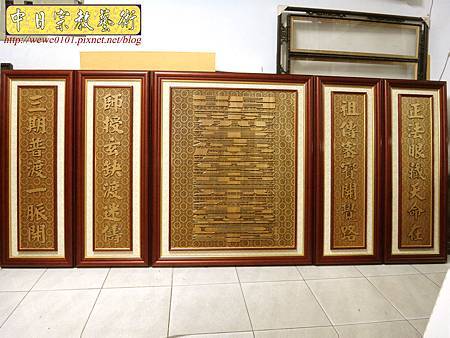 中日宗教藝術
http://wewe0101.pixnet.net/blog
正法眼藏天命在
祖傳密寶開智路
師授玄訣渡迷儔
三期普渡一脈開